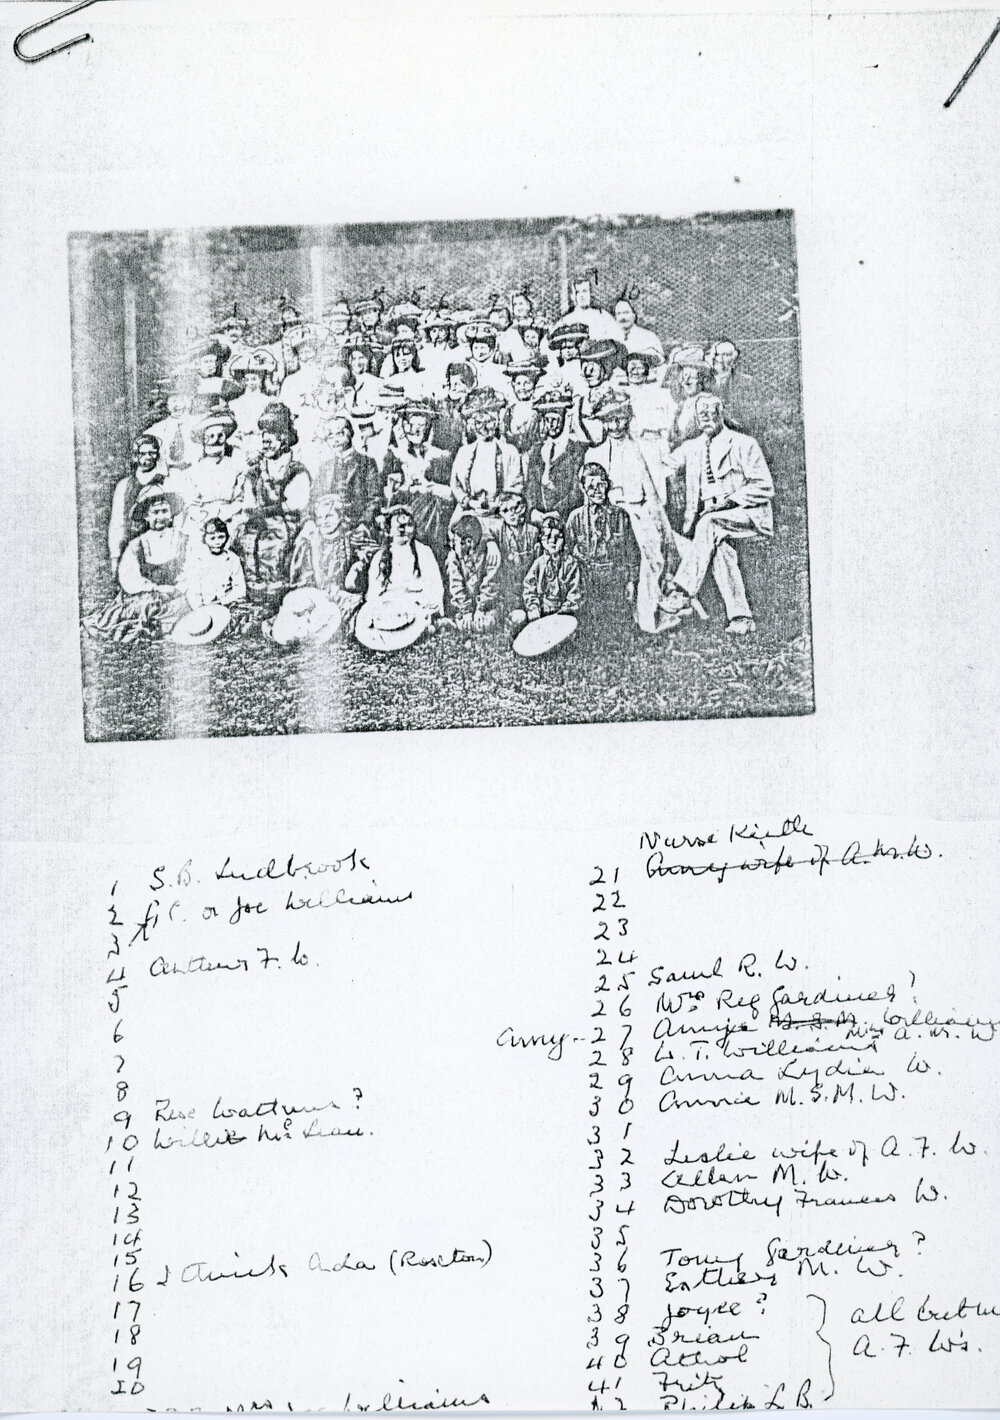 1 S.B. Ludbrook
2 or Joe Williams
3
4 F. W.
5
6
7
8
9 ?
10 Willie McLean.
11
12
13
14
15
16 I think Ada (Roseton)
17
18
19
20
Mrs Williams
Nurse Keith
21 Amy wife of A.M.W.
22
23
24
25 Saml R. W.
26 Mrs Reg Gardiner?
Amy-- 27 M.S.M. Williams
Mrs A. M. W
28 W. T. Williams
29 Anna Lydia W.
30 Annie M. S. M. W.
31
32 Leslie wife of A. F. W.
33 Allan M. W.
34 Dorothy Frances W.
35
36 Tony Gardiner?
37 Esther M. W.
38 Joyce?
39 Brian
40 Athol
41 Fritz
42 Philip L B.
all but
A. F. W's.